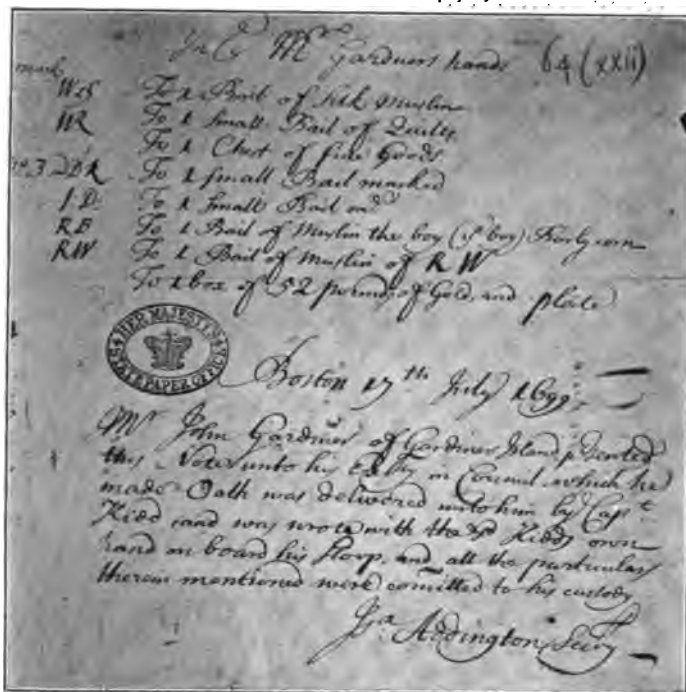 In Cᵗ Mʳˢ Gardners hands 64 (xxii)
mark
WS To 1 Bail of Silk Muslin
WR To 1 Small Bail of Quilts
To 1 Chest of fine Goods
No. 3 DBR To 1 small Bail marked
J.D. To 1 Small Bail mᵈ
RB To 1 Bail of Muslin the boy (if boy)
RW To 1 Bail of Muslin of RW
To 1 box of 52 pounds of Gold, and plate
HER MAJESTY'S STATE PAPER OFFICE
Boston 17ᵗʰ July 1699
Mʳ John Gardiner of Gardiners Island presented
this Note unto his Exᶜʸ in Council which he
made Oath was delivered unto him by Capᵗ
Kidd and was wrote with the sᵈ Kidds own
hand on board his Sloop, and all the particulars
therein mentioned were comitted to his custody
Jˢᵃ Addington Secʳʸ